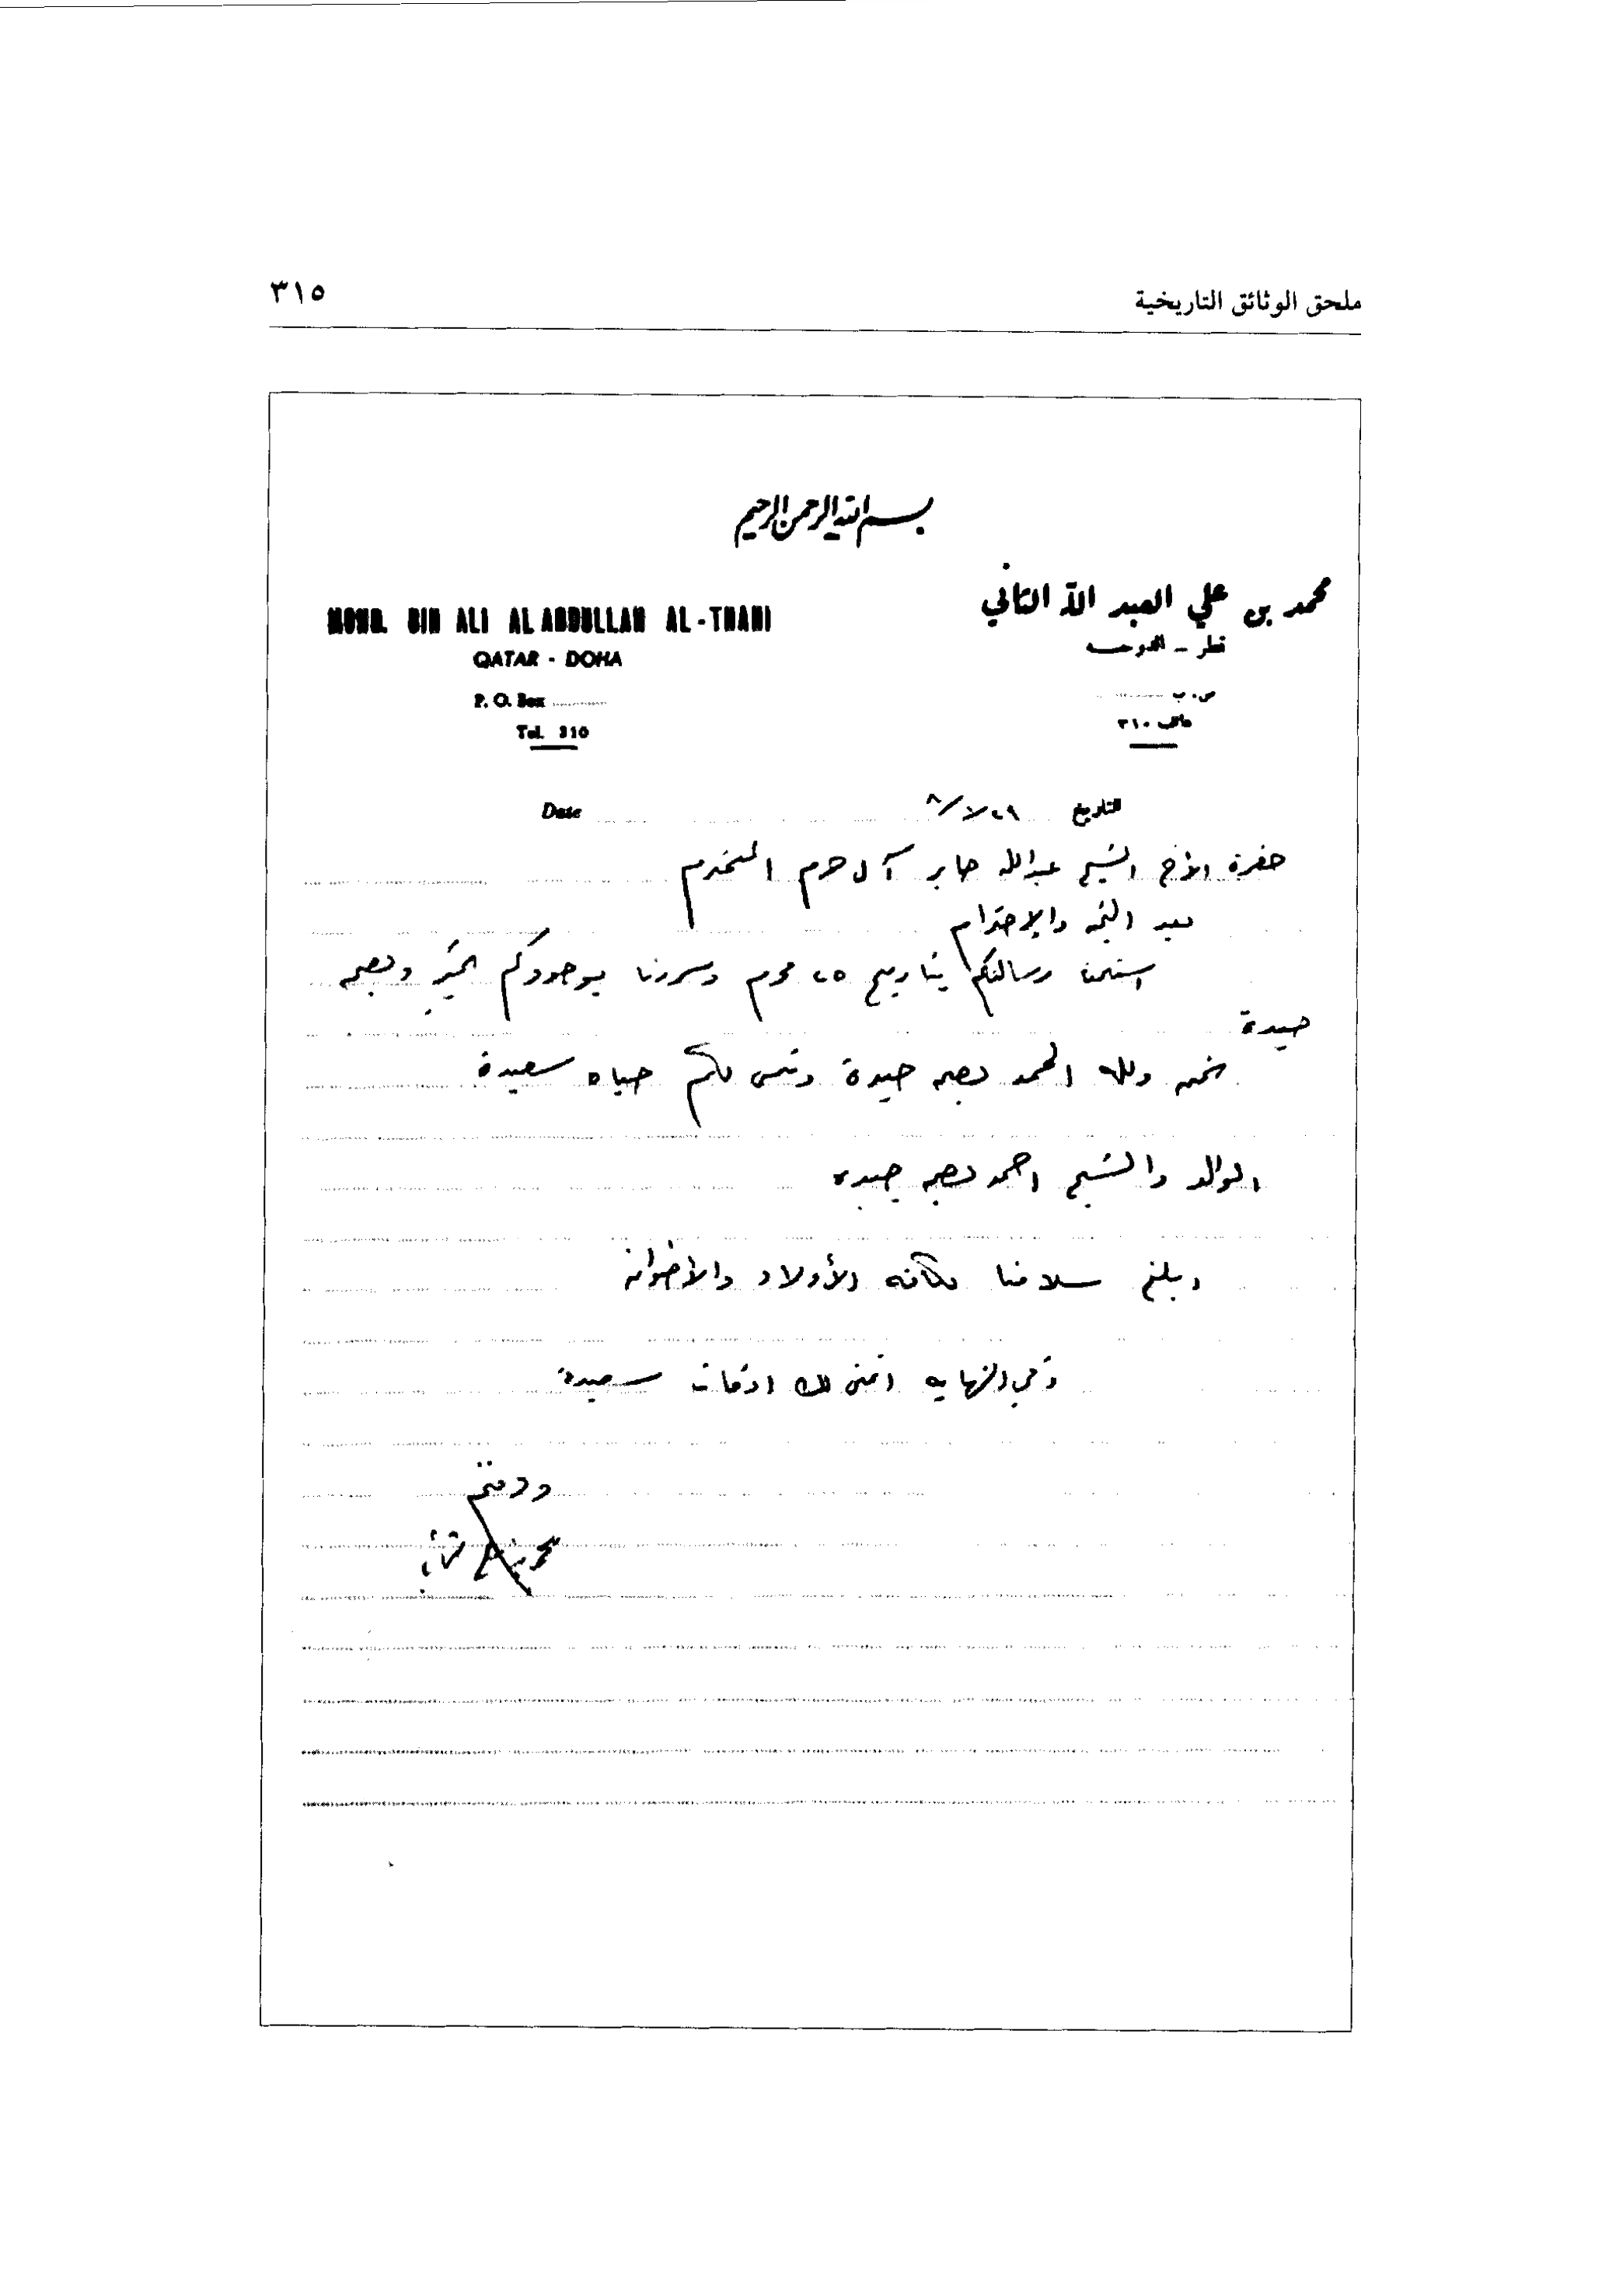 ملحق الوثائق التاريخية
٣١٥
بسم الله الرحمن الرحيم
محمد بن علي العبد الله الثاني
قطر - الدوحه
ص. ب
هاتف ٣١٠
MOHD. BIN ALI AL ABDULLAH AL-THANI
QATAR - DOHA
P. O. Box
Tel. 310
التاريخ
Date
حضرة الأخ الشيخ عبدالله جابر آل حرم المحترم
بعد التحيه والإحترام
استلمنا رسالتكم بتاريخ ٢٥ محرم وسررنا بوجودكم بخير وبصحه
جيدة
نحن ولله الحمد بصحه جيدة ونتمنى لكم حياه سعيدة
الوالد والشيخ احمد بصحه جيده
وبلغ سلامنا لكافه الأولاد والأخوان
وفي النهايه اتمنى لك اوقات سعيدة
ودمتم